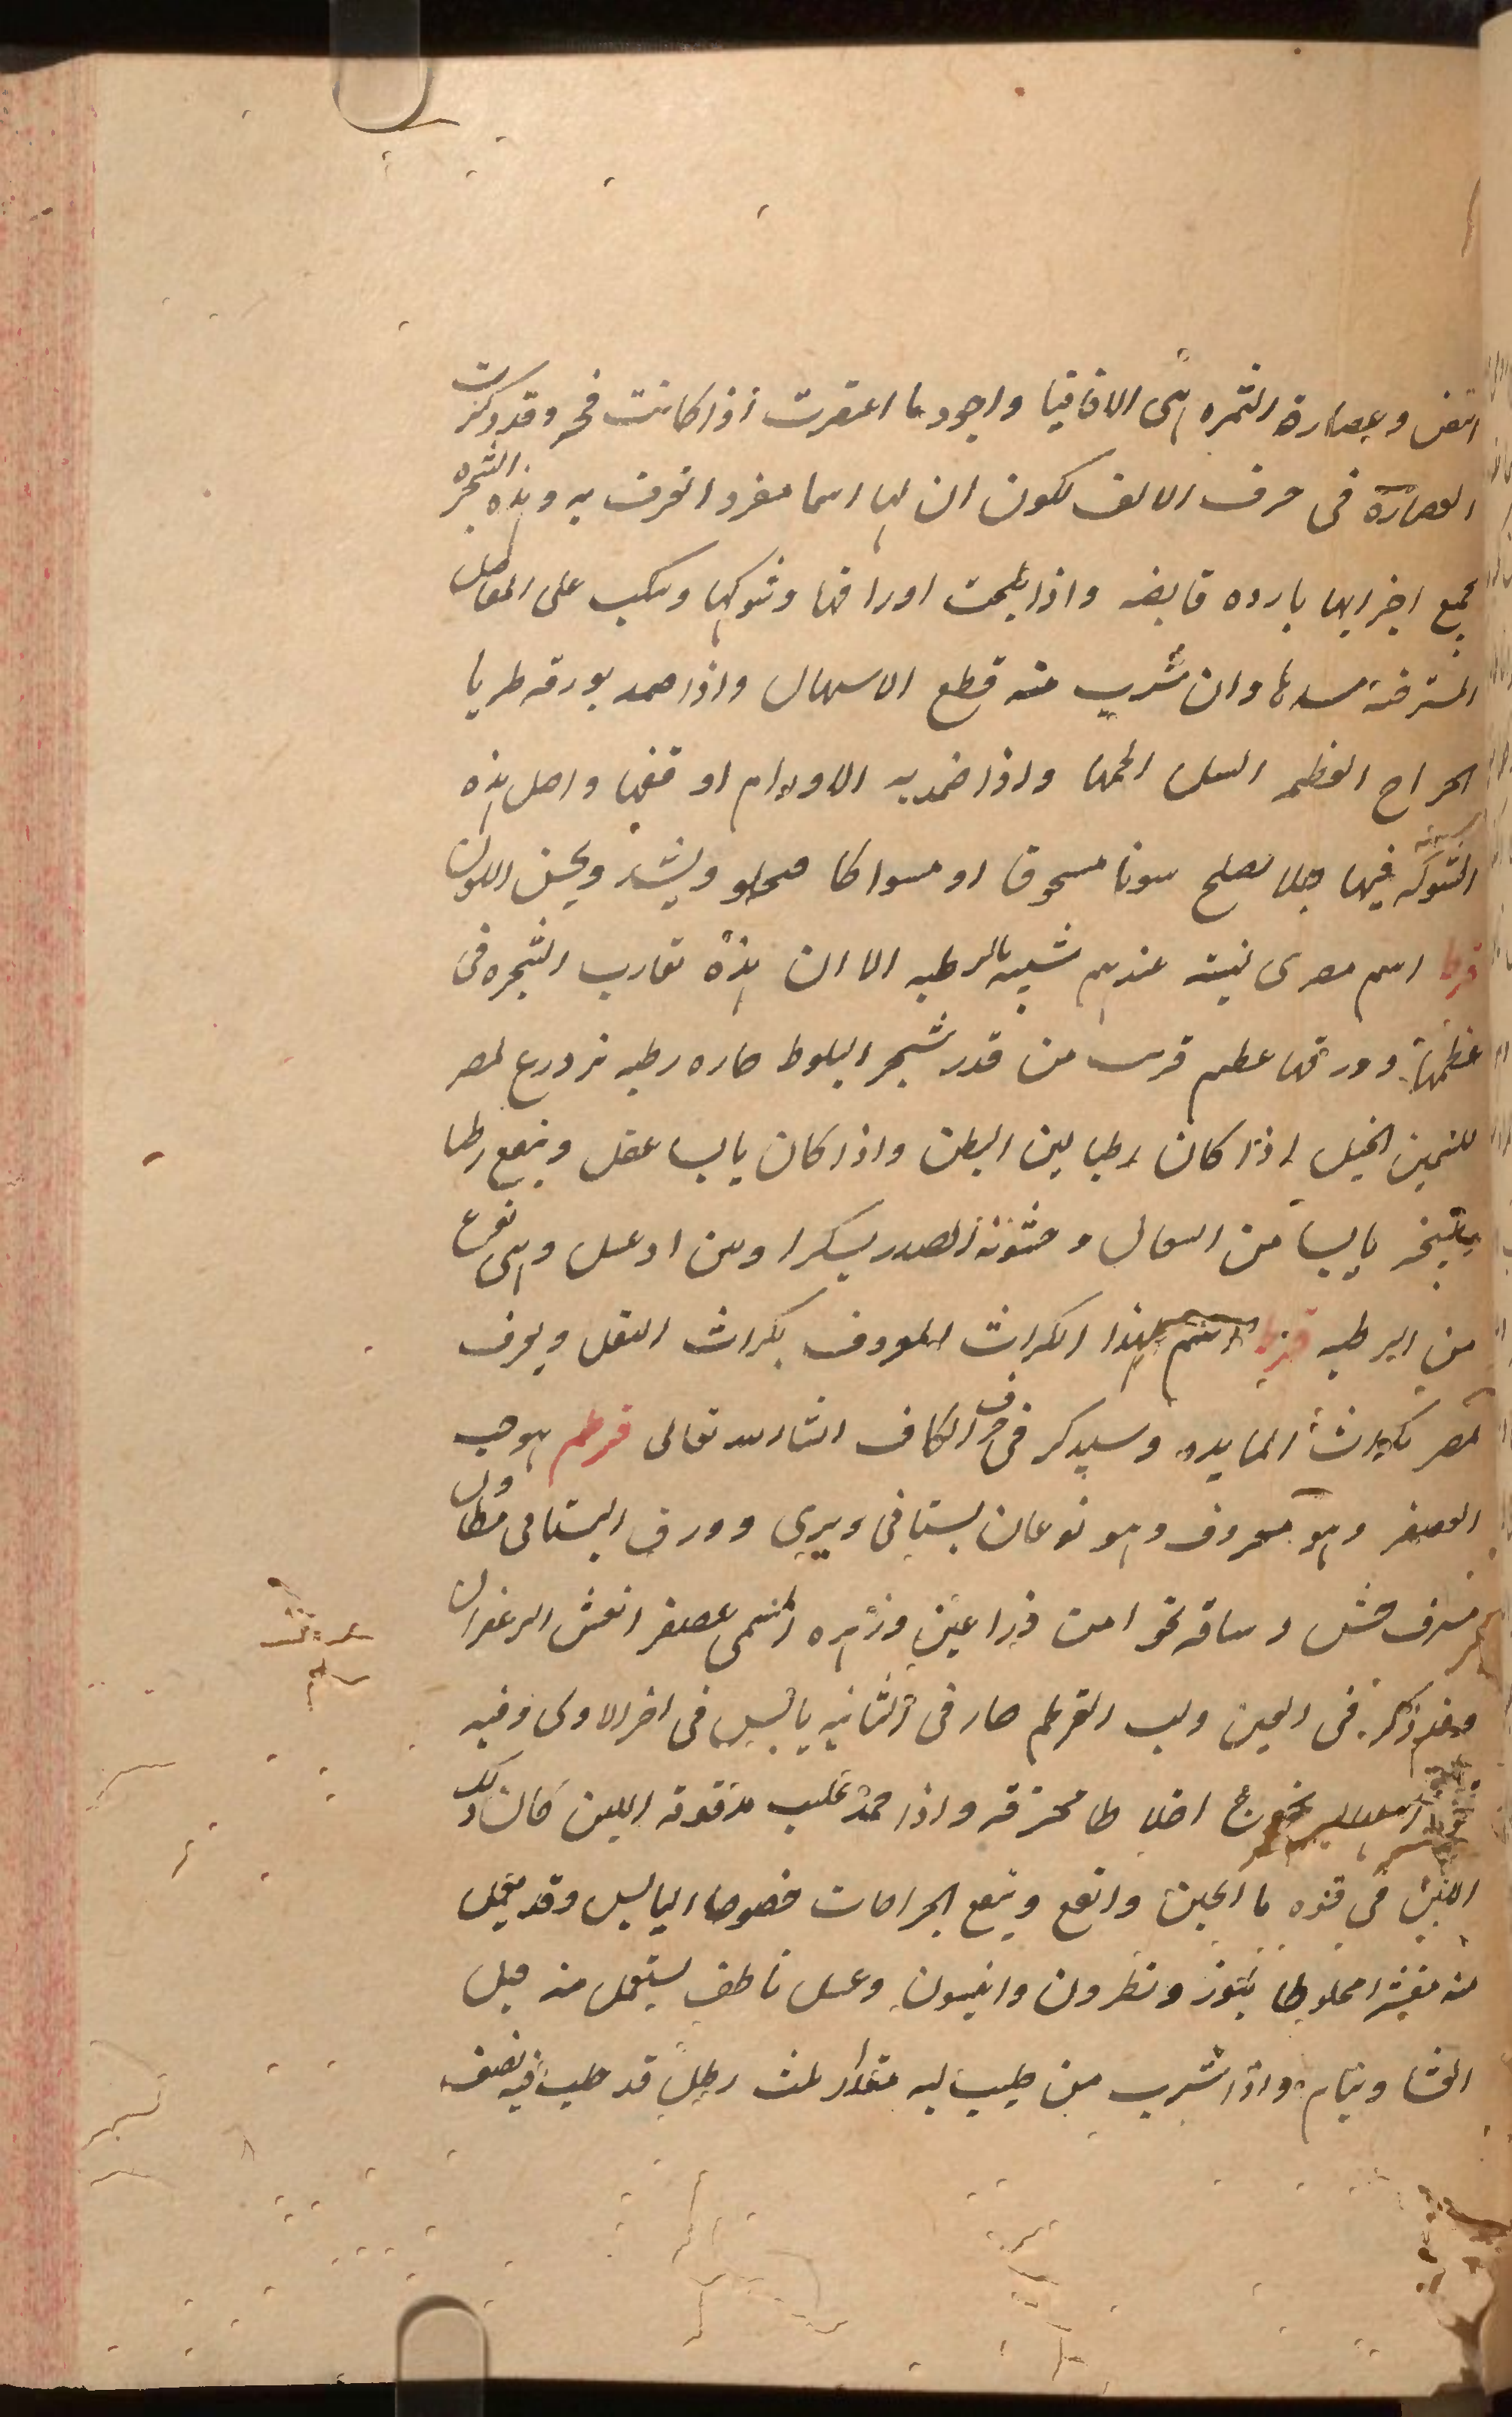 القض وعصارة الثمره هى الاقاقيا واجود ما اعتصرت اذا كانت فجه وقد ذكرت
العصارة فى حرف الالف لكون ان لها اسما مفردا تعرف به وهذه الشجره
جميع اجزايها بارده قابضه واذا طبخت اوراقها وشوكها وسكب على المفاصل
المسترخيه شدها وان شرب منه قطع الاسهال واذا ضمد بورقه طريا
الجراح العظيم السلس الحمها واذا ضمد به الاورام اوقفها واصل هذه
الشوكه فيها جلا يصلح سنونا مسحوقا او مسواكا فيجلو ويشد ويحسن اللون
قرط اسم مصرى لنبته عندهم شبيه بالرطبه الا ان هذه تقارب الشجره فى
عظمها وورقها عظيم قريب من قدر شجر البلوط حاره رطبه تزدرع بمصر
لتسمين الخيل اذا كان رطبا لين البطن واذا كان يابسا عقل وينفع رطبا
يابسا من السعال وخشونة الصدر بسكر او لبن او عسل وهى نوع
من الرطبه قرط اسم لهذا الكراث المعروف بكراث البقل ويعرف
بمصر بكراث المايده وسيذكر فى حرف الكاف انشا الله تعالى قرطم هو حب
العصفر وهو معروف وهو نوعان بستانى وبرى وورق البستانى مطاول
مشرف خشن وساقه نحوا من ذراعين وزهره المسمى عصفر انعش الزعفران
وتقدم ذكره فى العين ولب القرطم حار فى الثانيه يابس فى اخر الاولى وفيه
اسهال يخرج اخلاطا محترقه واذا جمد حليب مدقوقه اللبن كان ذلك
اللبن فى قوه ما الجبن وانفع وينفع الجراحات خصوصا اليابس وقد يعمل
منه مقشرا مخلوطا بلوز ونطرون وانيسون وعسل ناطف يستعمل منه قبل
العشا وينام واذا شرب من حليب لبه مقدار ثلث رطل قد حلب فيه نصف